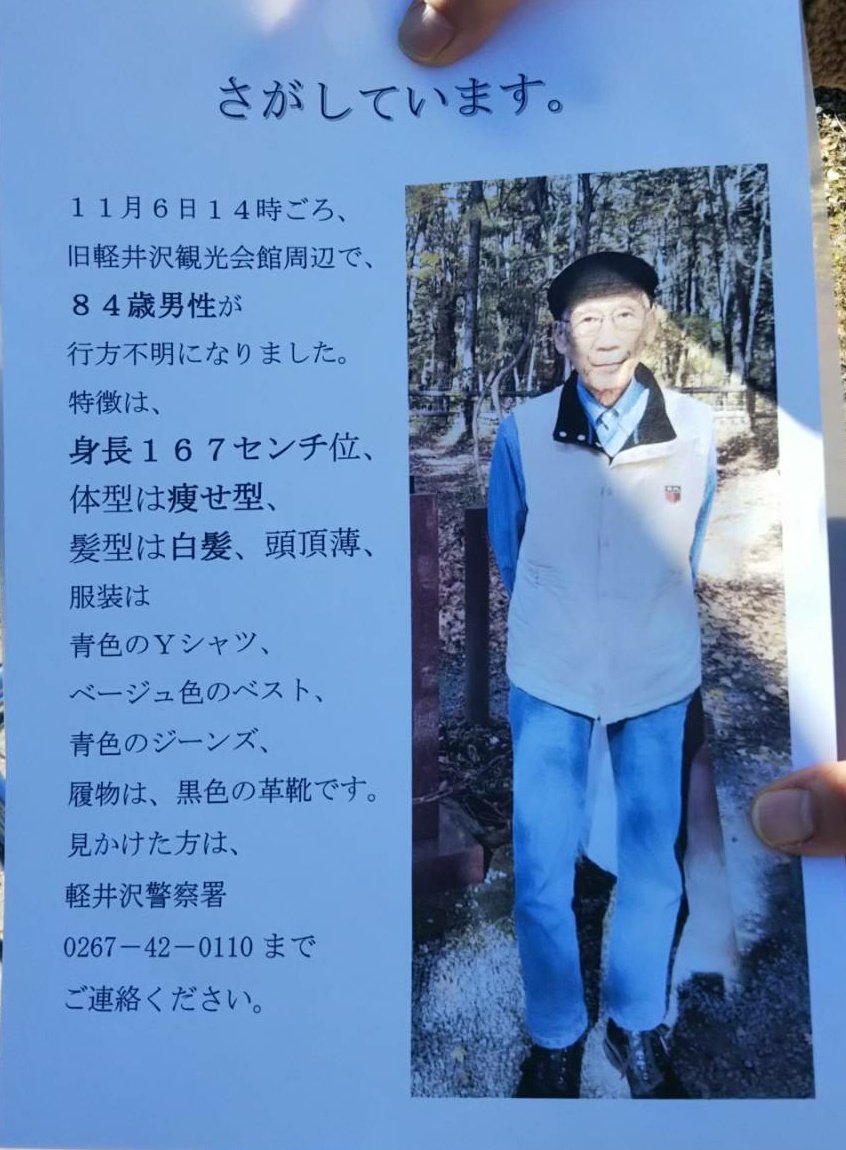 さがしています。
１１月６日１４時ごろ、
旧軽井沢観光会館周辺で、
８４歳男性が
行方不明になりました。
特徴は、
身長１６７センチ位、
体型は痩せ型、
髪型は白髪、頭頂薄、
服装は
青色のＹシャツ、
ベージュ色のベスト、
青色のジーンズ、
履物は、黒色の革靴です。
見かけた方は、
軽井沢警察署
0267－42－0110 まで
ご連絡ください。